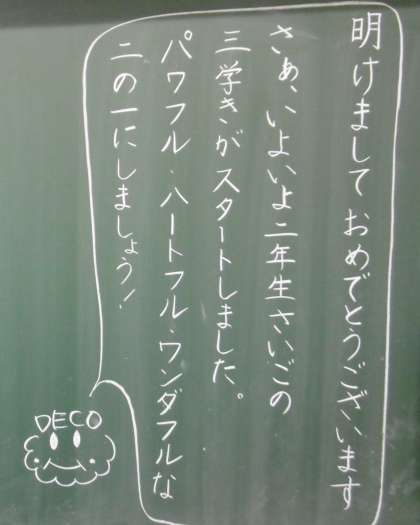 明けまして おめでとうございます
さぁ、いよいよ二年生さいごの
三学きがスタートしました。
パワフル・ハートフル・ワンダフルな
二の一にしましょう!
DECO